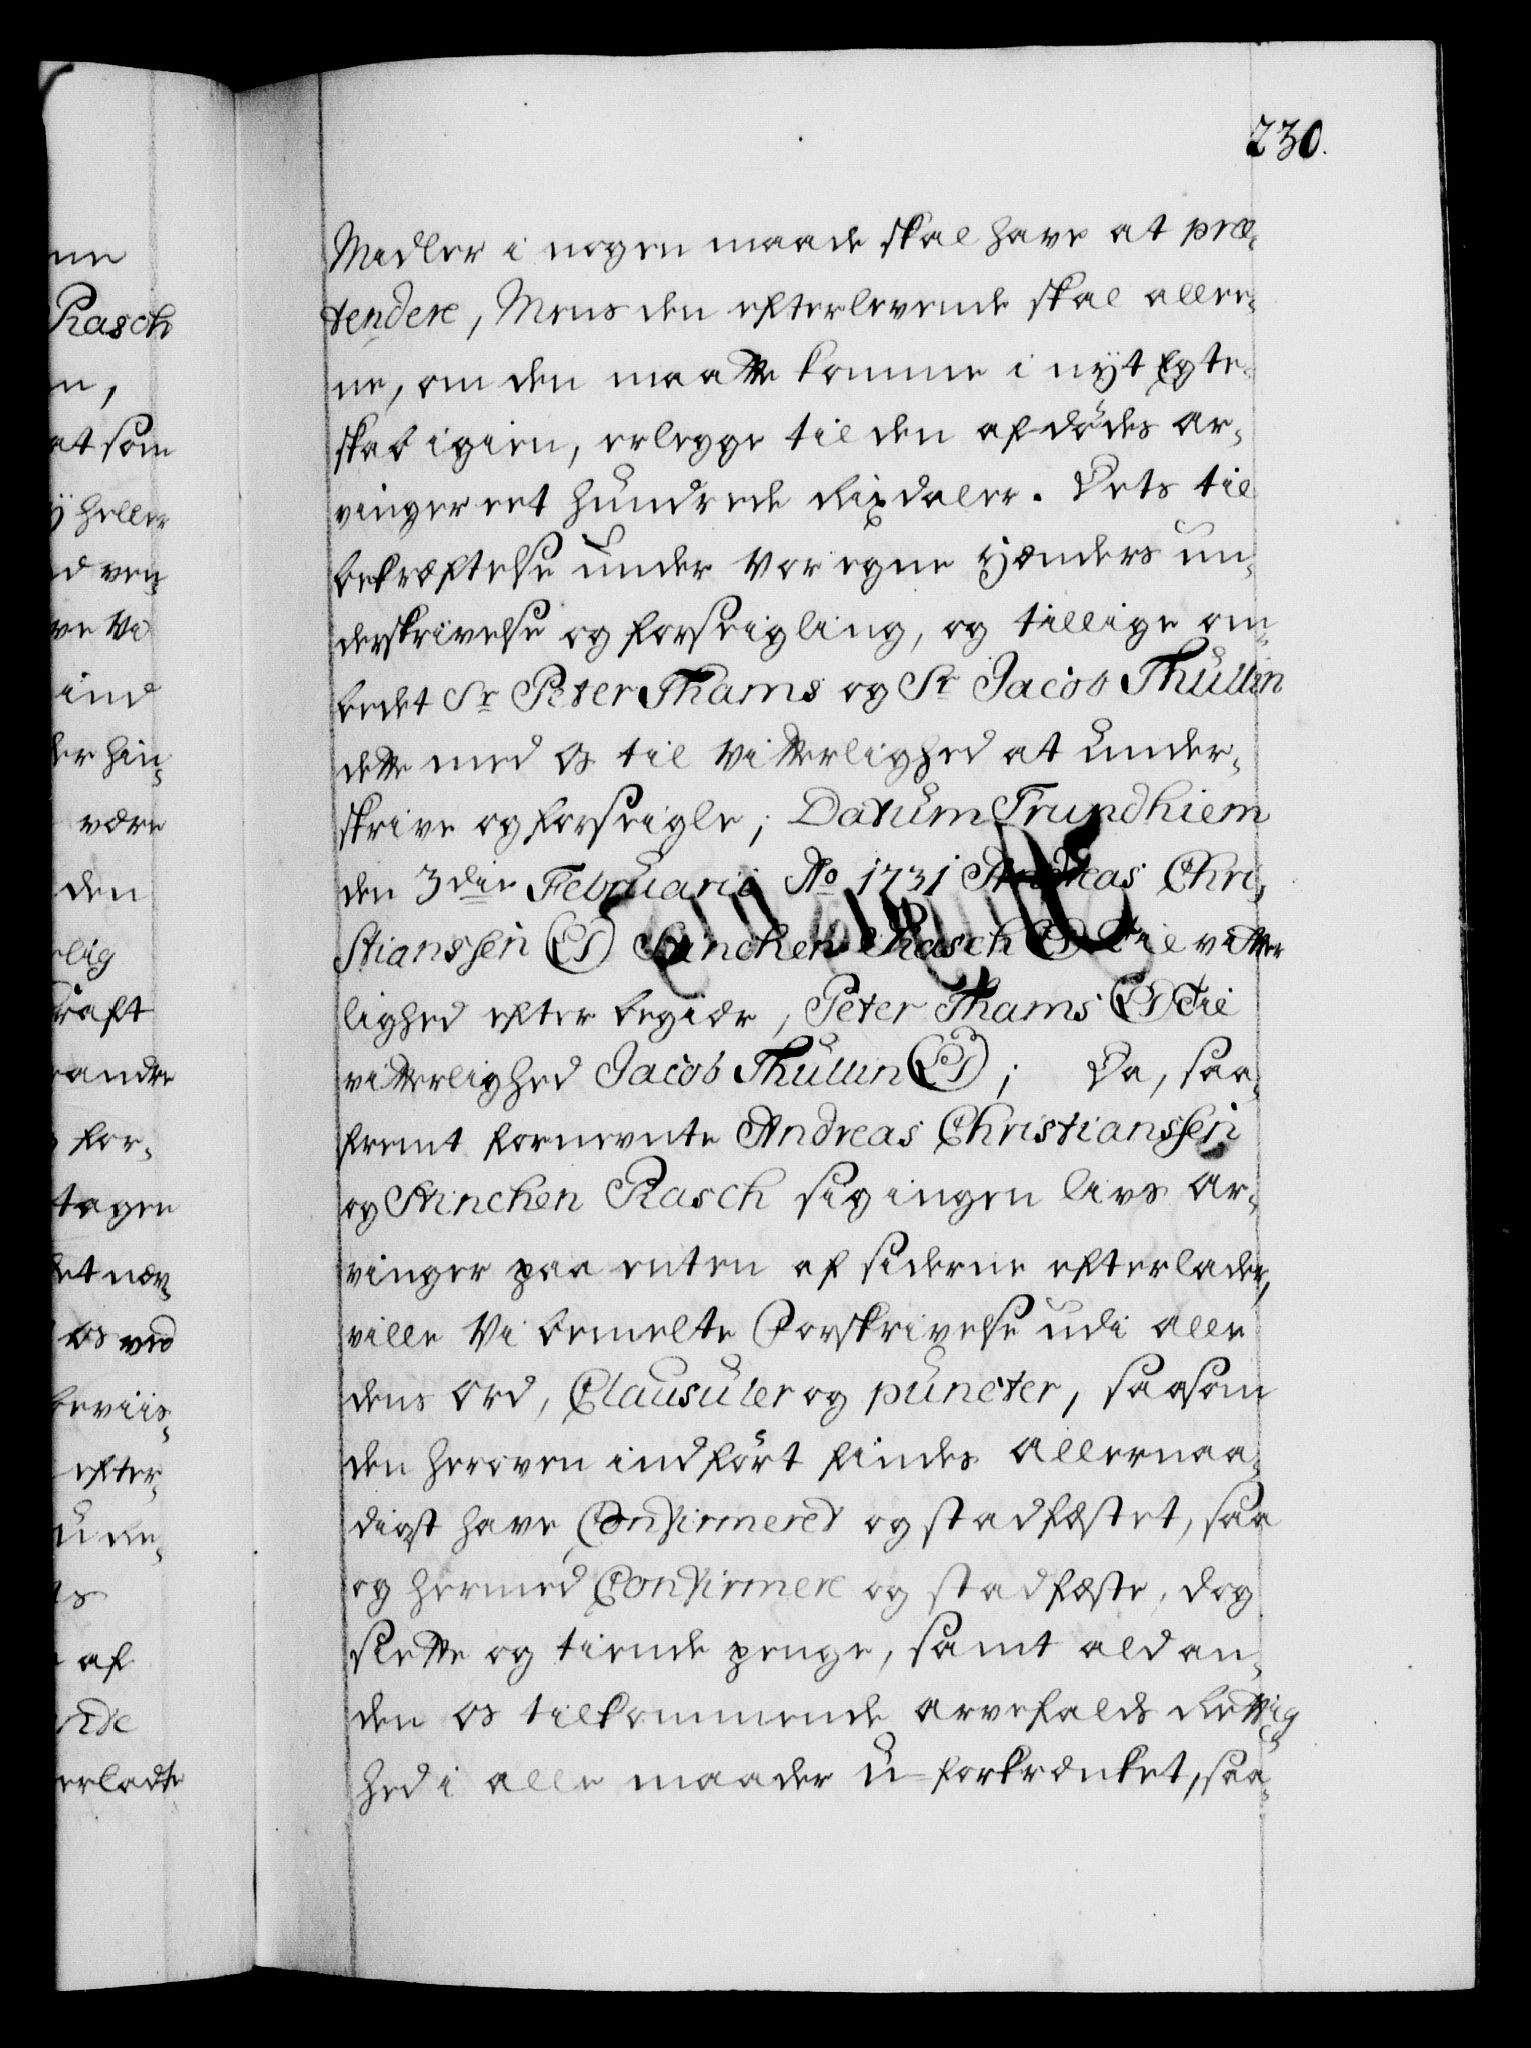 230.
Midler i nogen maade skal have at præ-
tendere, Mens den efterlevende skal allee-
ne, om den maatte komme i nyt Egte-
skab igien, erlegge til den afdødes Ar-
vinger eet hundrede Rixdaler. Dets til
bekræftelse under vor egne Hænders un-
derskrivelse og forseigling, og tillige om-
bedet Sr. Peter Thams og Sr. Jacob Thullin
dette med os til Vitterlighed at under-
skrive og forseigle; Datum Trundhiem
den 3die Februarii Ao 1731 Andreas Chri-
stianssen (LS) Stinchen Rasch (LS) Til vitter
lighed efter begiær, Peter Thams (LS) Til
vitterlighed Jacob Thullin (LS); Da, saa-
fremt fornevnte Andreas Christianssen
og Stinchen Rasch sig ingen livs Ar-
vinger paa enten af siderne efterlader,
ville Vi bemelte Forskrivelse udi alle
dens Ord, Clausuler og puncter, saasom
den heroven indført findes Allernaa-
digst have Confirmeret og stadfæstet, saa
og hermed Confirmere og stadfæste, dog
siette og tiende penge, samt ald an-
den os tilkommende arvefalds Rettig
hed i alle maader u-forkrænket, saa-
ne
Rasch
n,
at som
ÿ heller
d ven-
ve Vi
ind
der hin-
være
den
rlig
Kraft
randre
for-
tagen
det nær-
os ved
beviis-
efter-
af
erladte